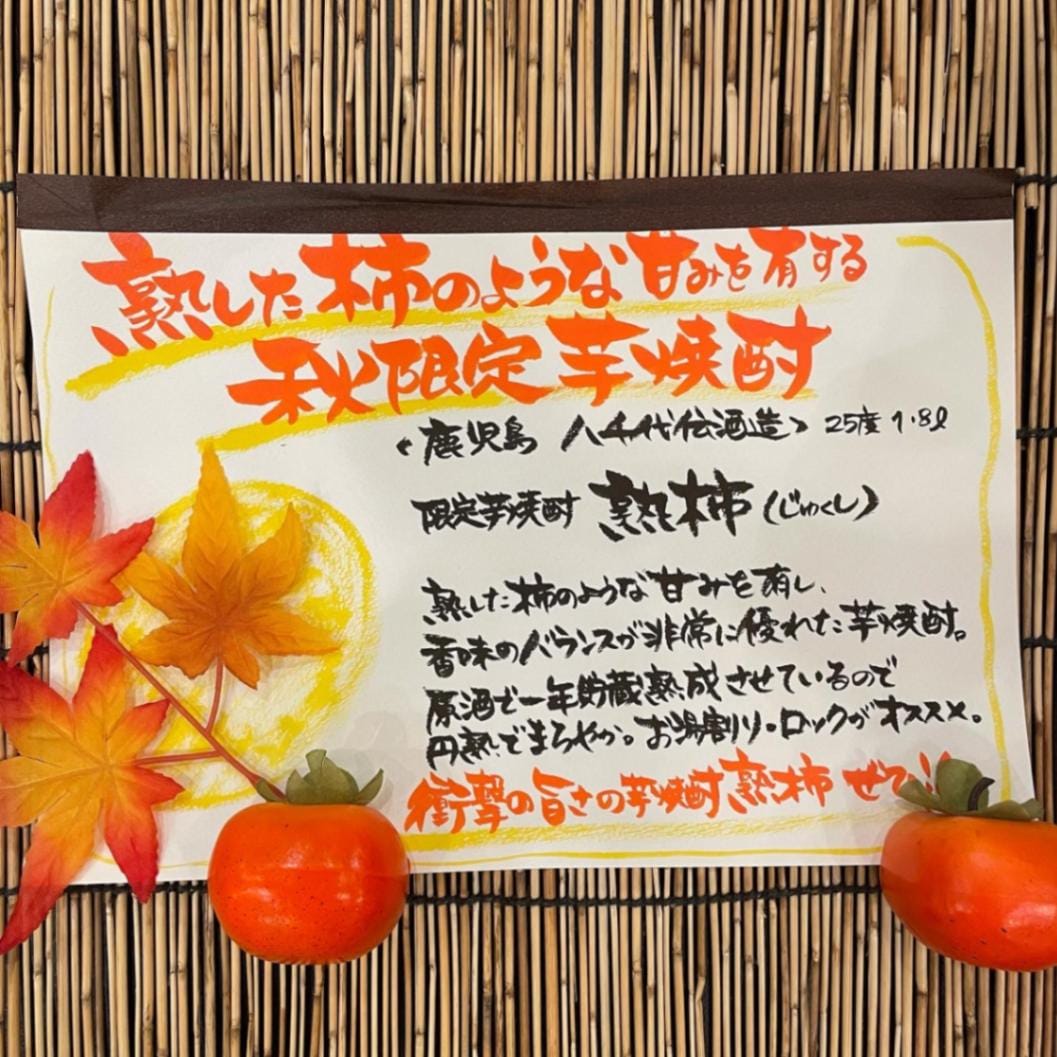 熟した柿のような甘みを有する
秋限定芋焼酎
<鹿児島 八千代伝酒造> 25度 1.8ℓ
限定芋焼酎 熟柿(じゅくし)
熟した柿のような甘みを有し、
香味のバランスが非常に優れた芋焼酎。
原酒で一年貯蔵熟成させているので
円熟でまろやか。お湯割り・ロックがオススメ。
衝撃の旨さの芋焼酎熟柿